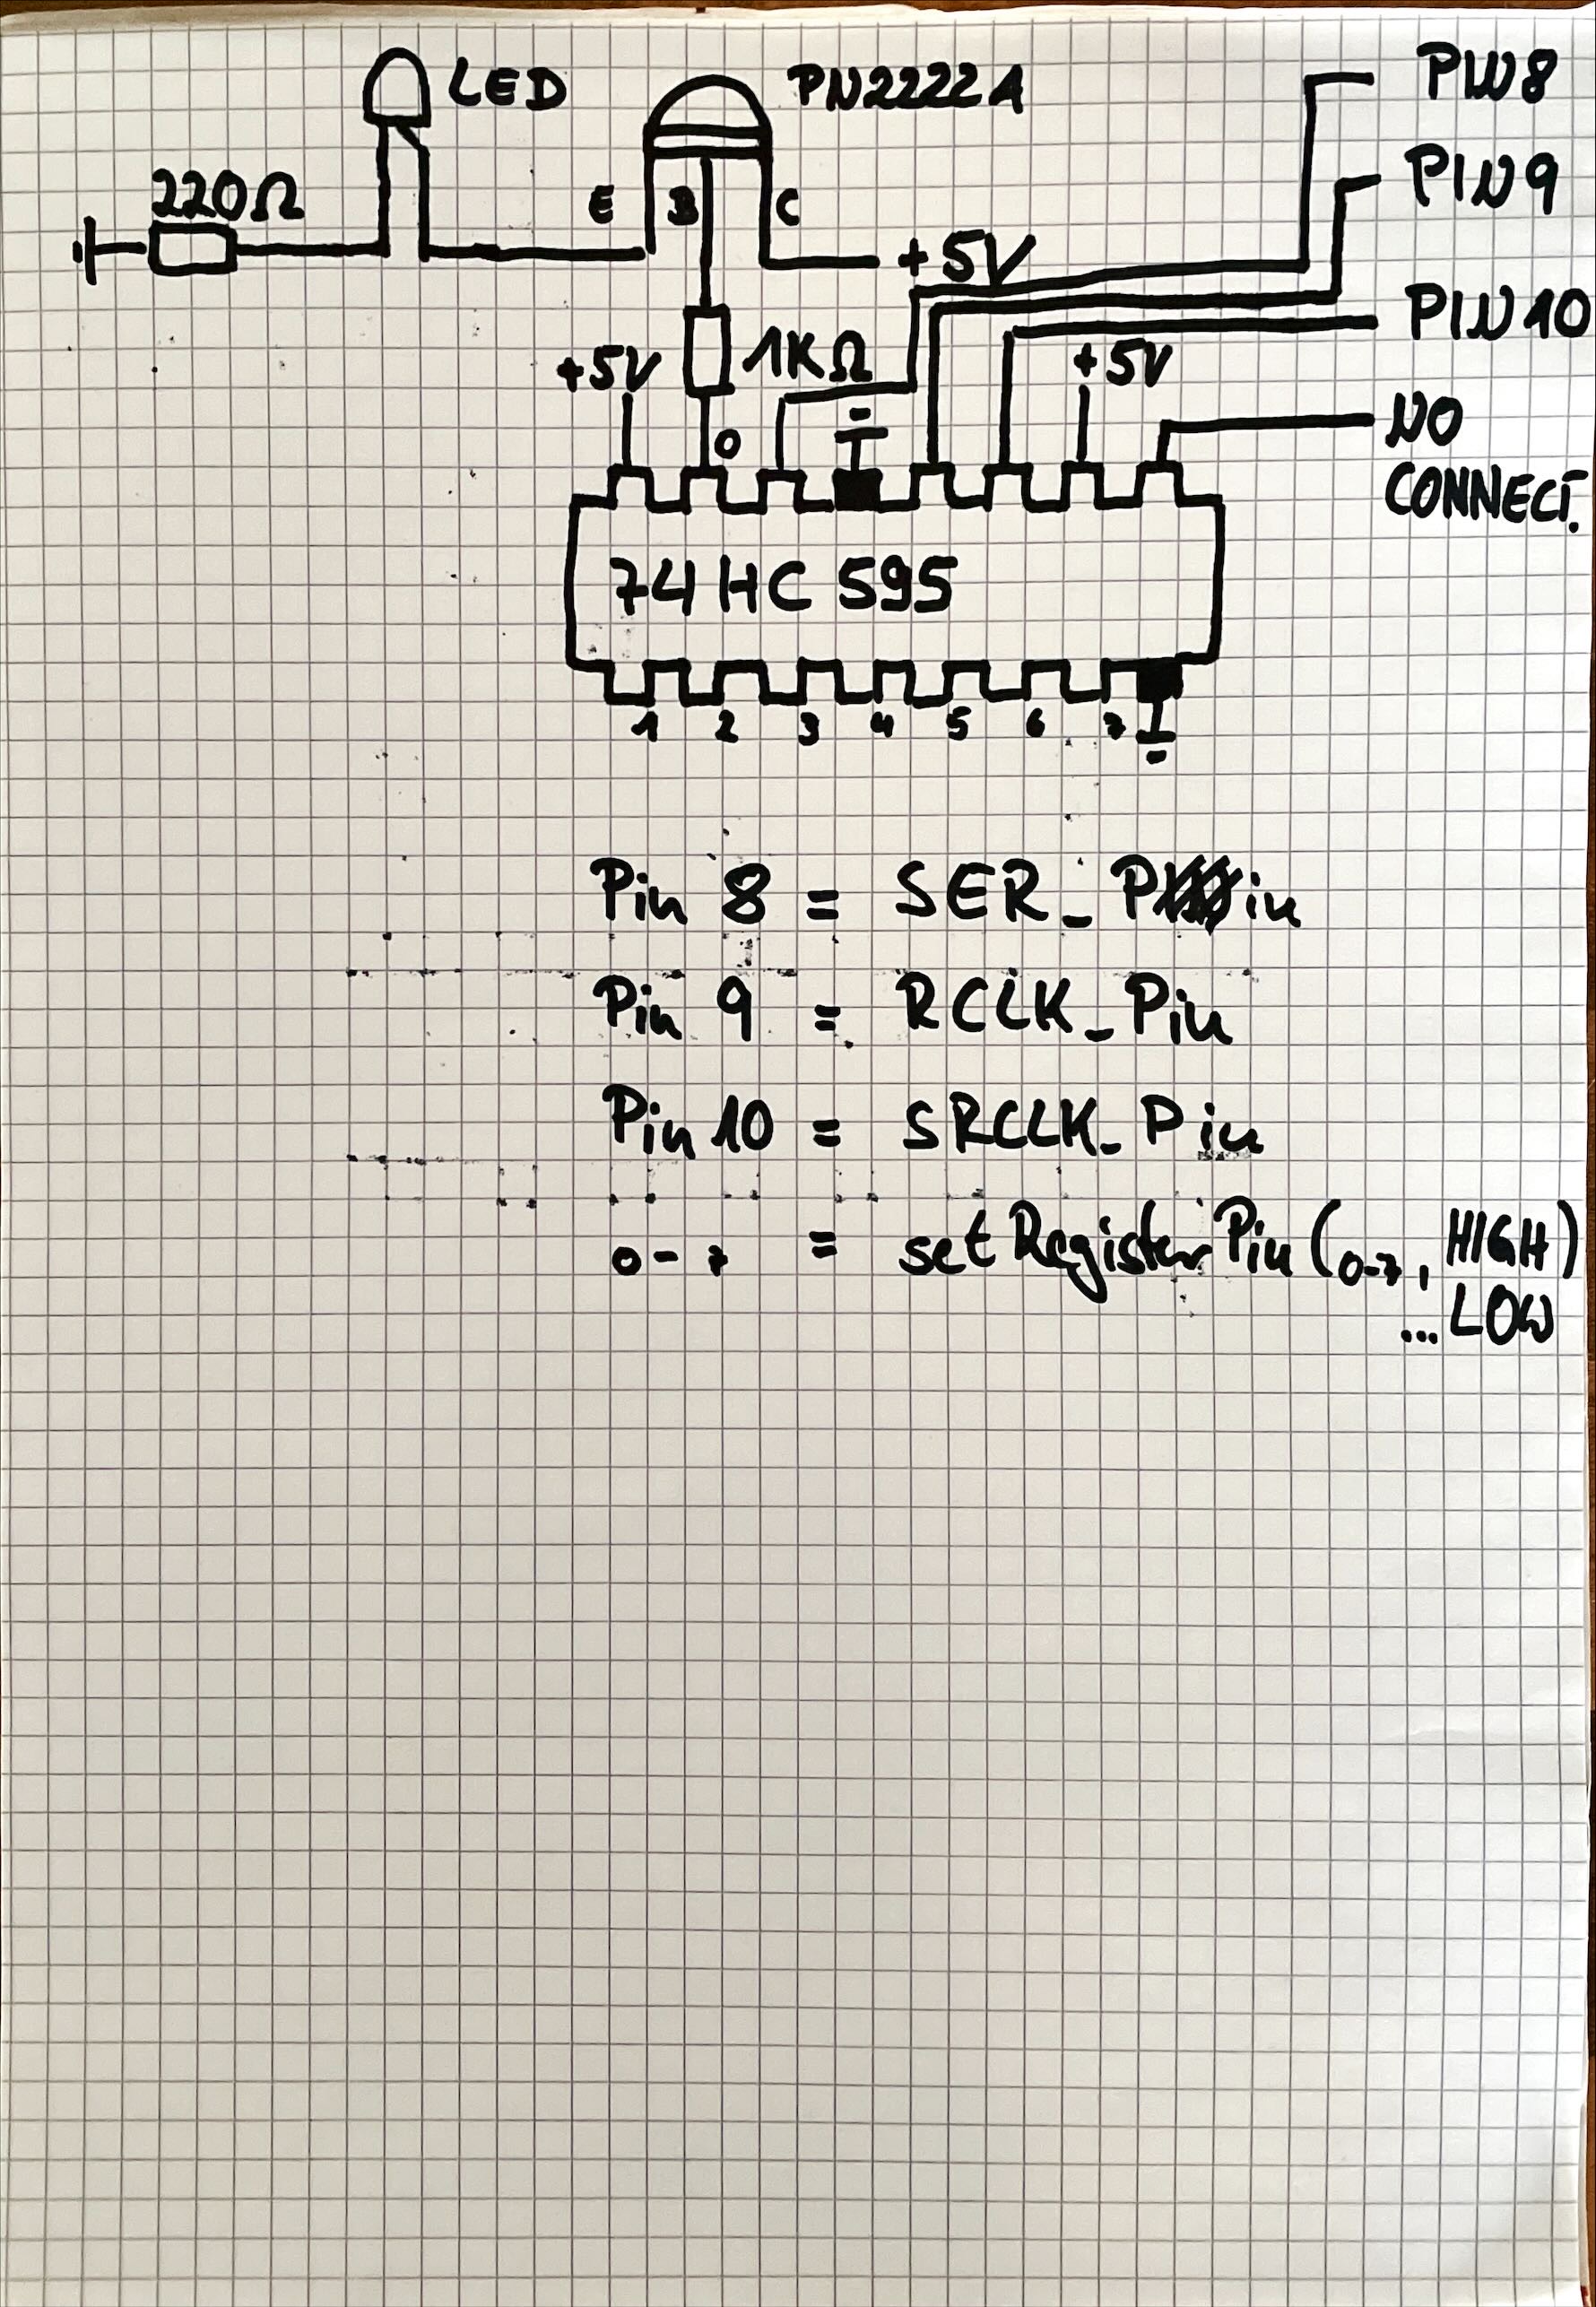 LED
PN2222A
PIN8
220Ω
E B C
PIN9
+5V
PIN10
+5V
1KΩ
+5V
0
NO
CONNECT.
74HC595
1 2 3 4 5 6 7
Pin 8 = SER_Pin
Pin 9 = RCLK_Pin
Pin 10 = SRCLK_Pin
0-7 = setRegisterPin(0-7, HIGH)
...LOW